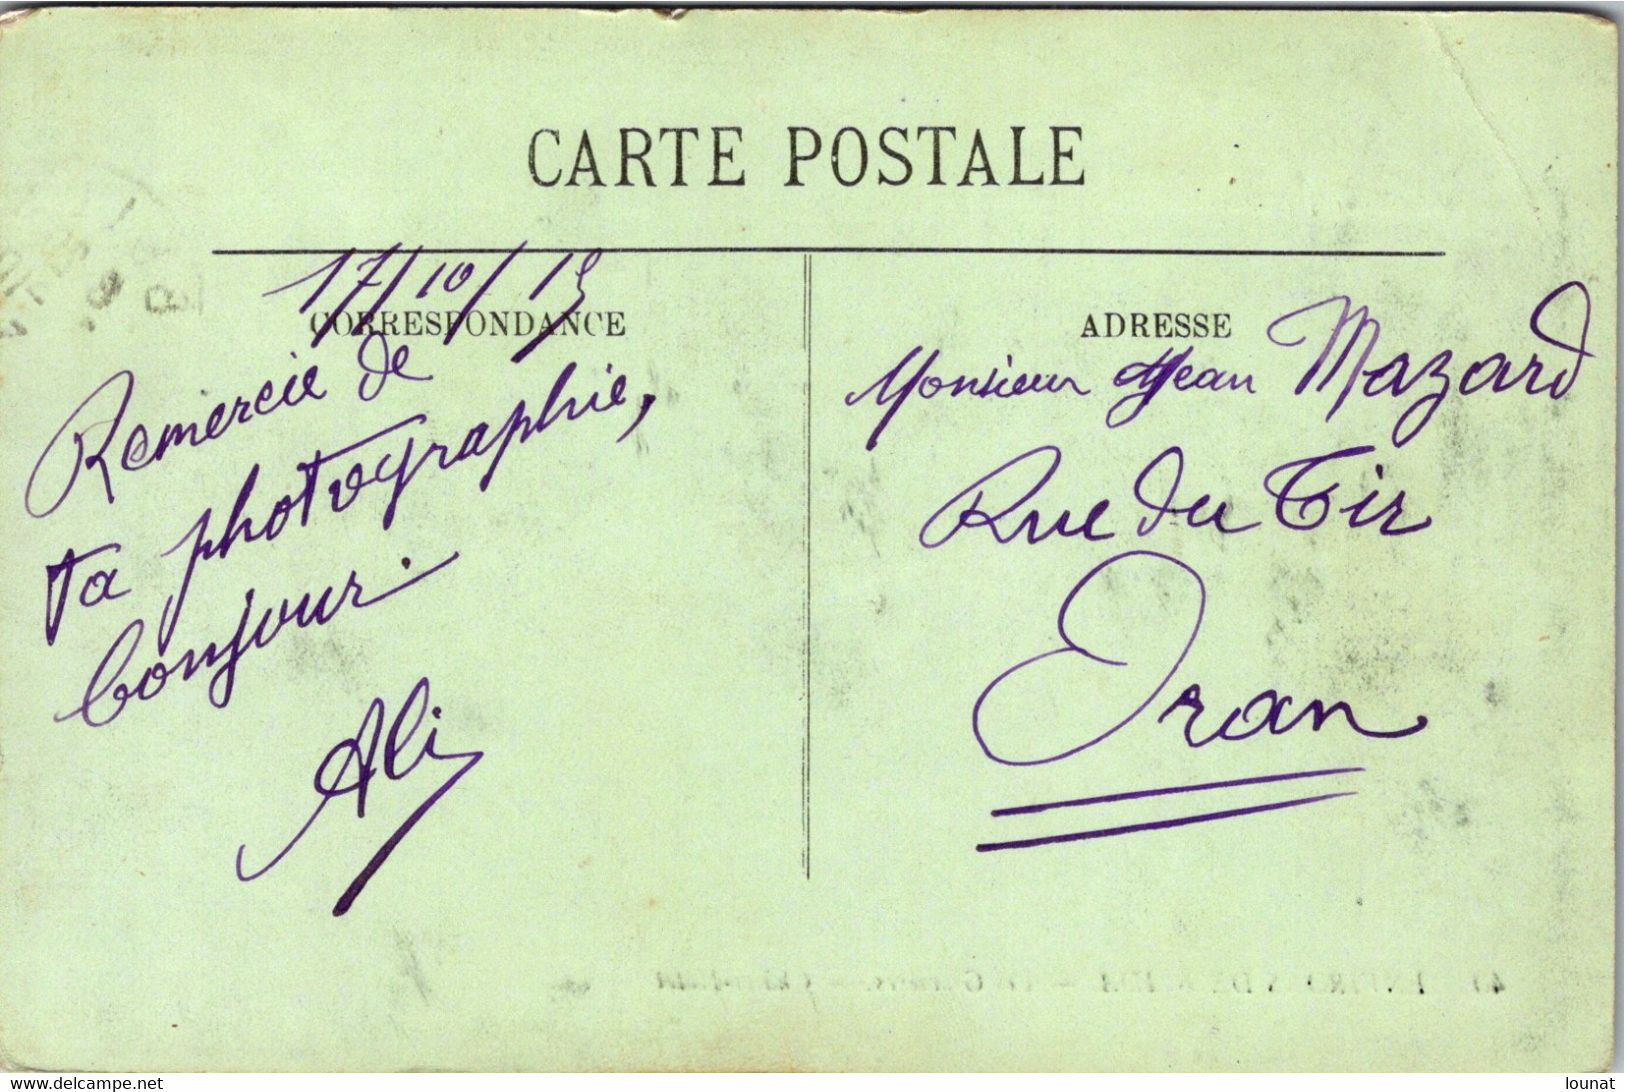 CARTE POSTALE
17/10/19
CORRESPONDANCE
Remercie de
ta photographie,
bonjour.
Ali
ADRESSE
Monsieur Jean Mazard
Rue du Tir
Oran
www.delcampe.net
lounat